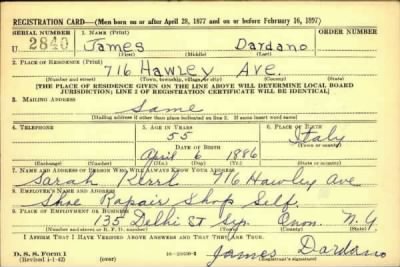 REGISTRATION CARD—(Men born on or after April 28, 1877 and on or before February 16, 1897)
SERIAL NUMBER
1. NAME (Print)
ORDER NUMBER
U 2840
James Dardano
(First) (Middle) (Last)
2. PLACE OF RESIDENCE (Print)
716 Hawley Ave.
(Number and street) (Town, township, village, or city) (County) (State)
[THE PLACE OF RESIDENCE GIVEN ON THE LINE ABOVE WILL DETERMINE LOCAL BOARD
JURISDICTION; LINE 2 OF REGISTRATION CERTIFICATE WILL BE IDENTICAL]
3. MAILING ADDRESS
Same
[Mailing address if other than place indicated on line 2. If same insert word same]
4. TELEPHONE
5. AGE IN YEARS
6. PLACE OF BIRTH
55
Italy
DATE OF BIRTH
(Town or county)
April 6 1886
(Exchange) (Number) (Mo.) (Day) (Yr.) (State or country)
7. NAME AND ADDRESS OF PERSON WHO WILL ALWAYS KNOW YOUR ADDRESS
Sarah 716 Hawley Ave
8. EMPLOYER'S NAME AND ADDRESS
Shoe Rapair Shop Self.
9. PLACE OF EMPLOYMENT OR BUSINESS
135 Delhi St Syr. Onon. N.Y.
(Number and street or R. F. D. number) (Town) (County) (State)
I AFFIRM THAT I HAVE VERIFIED ABOVE ANSWERS AND THAT THEY ARE TRUE.
D. S. S. Form 1
(Revised 1-1-42)
James Dardano
(Registrant's signature)